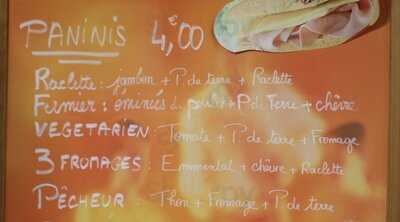 PANINIS 4,€00
Raclette : jambon + P. de terre + Raclette
Fermier : émincés de poulet + P. de Terre + chèvre
VEGETARIEN : Tomate + P. de terre + Fromage
3 FROMAGES : Emmental + chèvre + Raclette
PÊCHEUR : Thon + Fromage + P. de terre